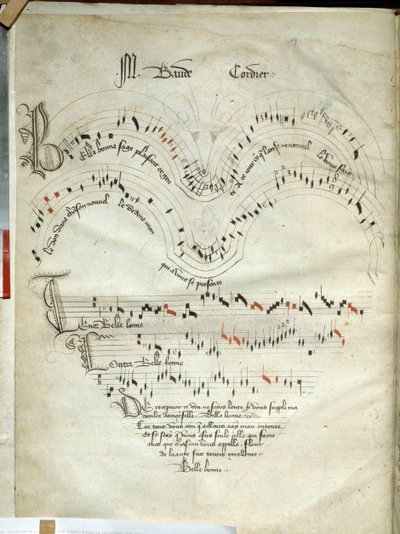 M. Baude Cordier
Belle bonne sage plaisant et gente
A ce jour cy que l'an se renouvelle Vous fais
le don d'une chanson nouvelle Dedens mon
cuer qui a vous se presente
Tenor Belle bonne
Contra Belle bonne
De recepvoir ce don ne soyes lente Je vous suppli ma
doulce damoyselle Belle bonne
Car tant vous aim qu'aillours nay mon entente
Et sy scay que vous estes seule celle qui fame
aves que chascun vous appelle flour
de beaute sur toutes excellente
Belle bonne